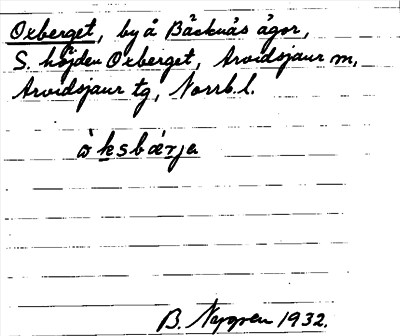 Oxberget, by å Bäcknäs ägor,
S. höjden Oxberget, Arvidsjaur sn,
Arvidsjaur tg, Norrb. l.
òksbærja
B. Nygren 1932.